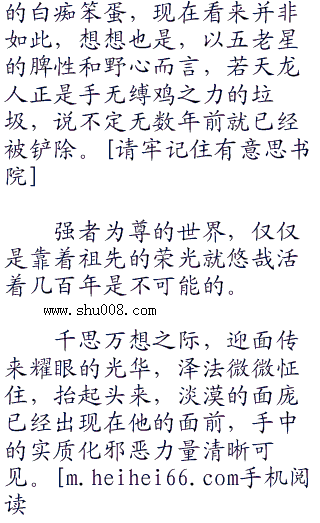 的白痴笨蛋，现在看来并非
如此，想想也是，以五老星
的脾性和野心而言，若天龙
人正是手无缚鸡之力的垃
圾，说不定无数年前就已经
被铲除。[请牢记住有意思书
院]
强者为尊的世界，仅仅
是靠着祖先的荣光就悠哉活
着几百年是不可能的。
www.shu008.com
千思万想之际，迎面传
来耀眼的光华，泽法微微怔
住，抬起头来，淡漠的面庞
已经出现在他的面前，手中
的实质化邪恶力量清晰可
见。[m.heihei66.com手机阅
读